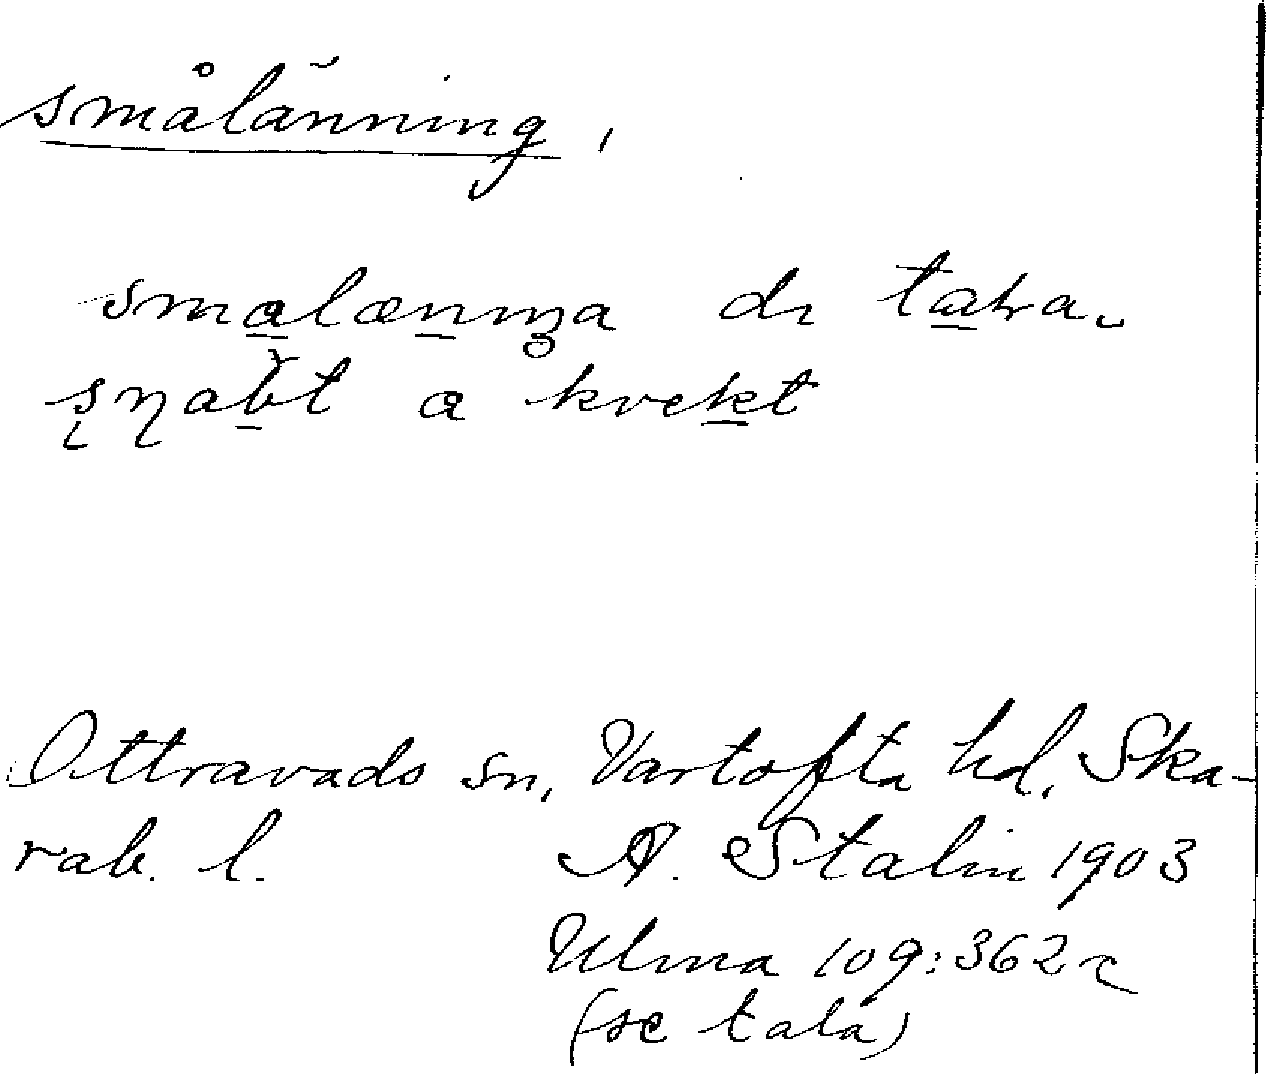 smålänning,
smalænıŋa dı taɫra
ʂɳabt a kvekt
Ottravads sn, Vartofta hd, Ska-
rab. l. A. Stalin 1903
Ulma 109:362 r
(se tala)